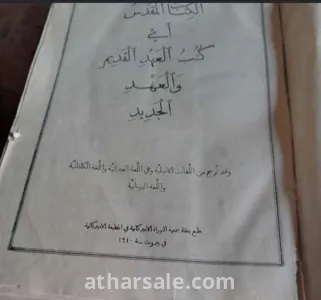 الكتاب المقدس
أي
كتب العهد القديم
والعهد
الجديد
وقد ترجم من اللغات الاصلية وهي اللغة العبرانية واللغة الكلدانية
واللغة اليونانية
طبع بنفقة جمعية التوراة الاميركانية في المطبعة الاميركانية
في بيروت سنة ١٩١٠
atharsale.com